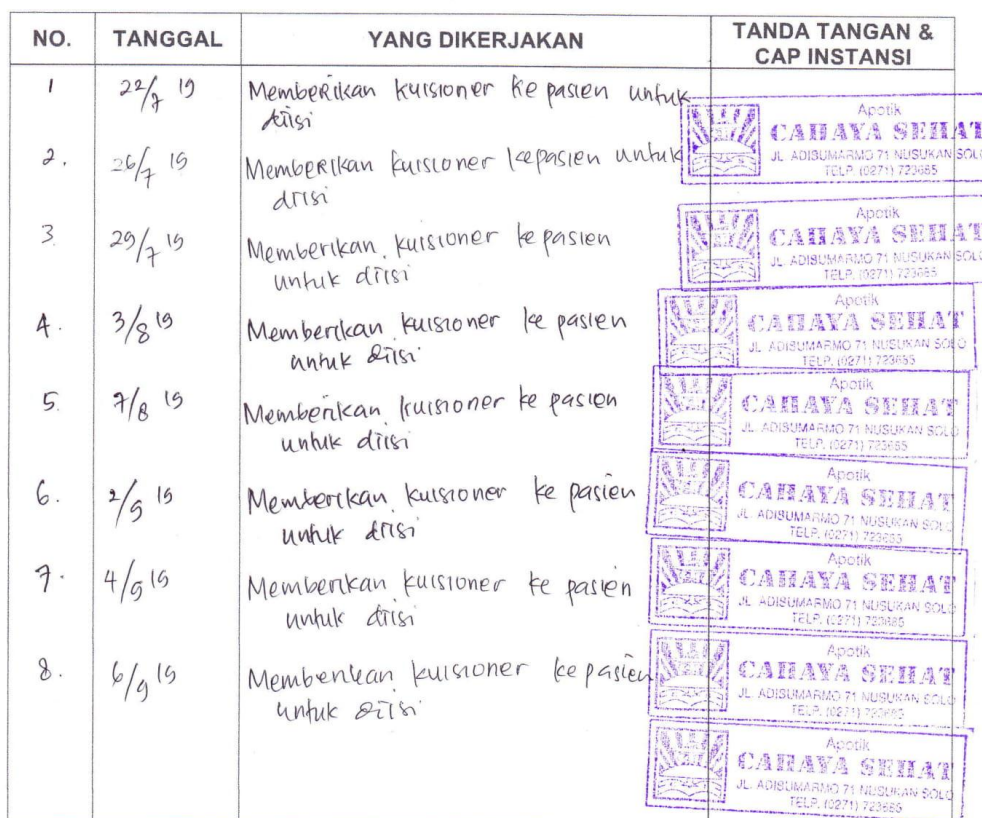 NO. TANGGAL YANG DIKERJAKAN TANDA TANGAN &
CAP INSTANSI
1 22/7 19 Memberikan kuisioner ke pasien untuk
diisi
Apotik
CAHAYA SEHAT
JL. ADISUMARMO 71 NUSUKAN SOLO
TELP. (0271) 723685
2. 26/7 19 Memberikan kuisioner kepasien untuk
diisi
Apotik
CAHAYA SEHAT
JL. ADISUMARMO 71 NUSUKAN SOLO
TELP. (0271) 723685
3. 29/7 19 Memberikan kuisioner ke pasien
untuk diisi
Apotik
CAHAYA SEHAT
JL. ADISUMARMO 71 NUSUKAN SOLO
TELP. (0271) 723685
4. 3/8 19 Memberikan kuisioner ke pasien
untuk diisi
Apotik
CAHAYA SEHAT
JL. ADISUMARMO 71 NUSUKAN SOLO
TELP. (0271) 723685
5. 7/8 19 Memberikan kuisioner ke pasien
untuk diisi
Apotik
CAHAYA SEHAT
JL. ADISUMARMO 71 NUSUKAN SOLO
TELP. (0271) 723685
6. 2/9 19 Memberikan kuisioner ke pasien
untuk diisi
Apotik
CAHAYA SEHAT
JL. ADISUMARMO 71 NUSUKAN SOLO
TELP. (0271) 723685
7. 4/9 19 Memberikan kuisioner ke pasien
untuk diisi
Apotik
CAHAYA SEHAT
JL. ADISUMARMO 71 NUSUKAN SOLO
TELP. (0271) 723685
8. 6/9 19 Memberikan kuisioner ke pasien
untuk diisi
Apotik
CAHAYA SEHAT
JL. ADISUMARMO 71 NUSUKAN SOLO
TELP. (0271) 723685